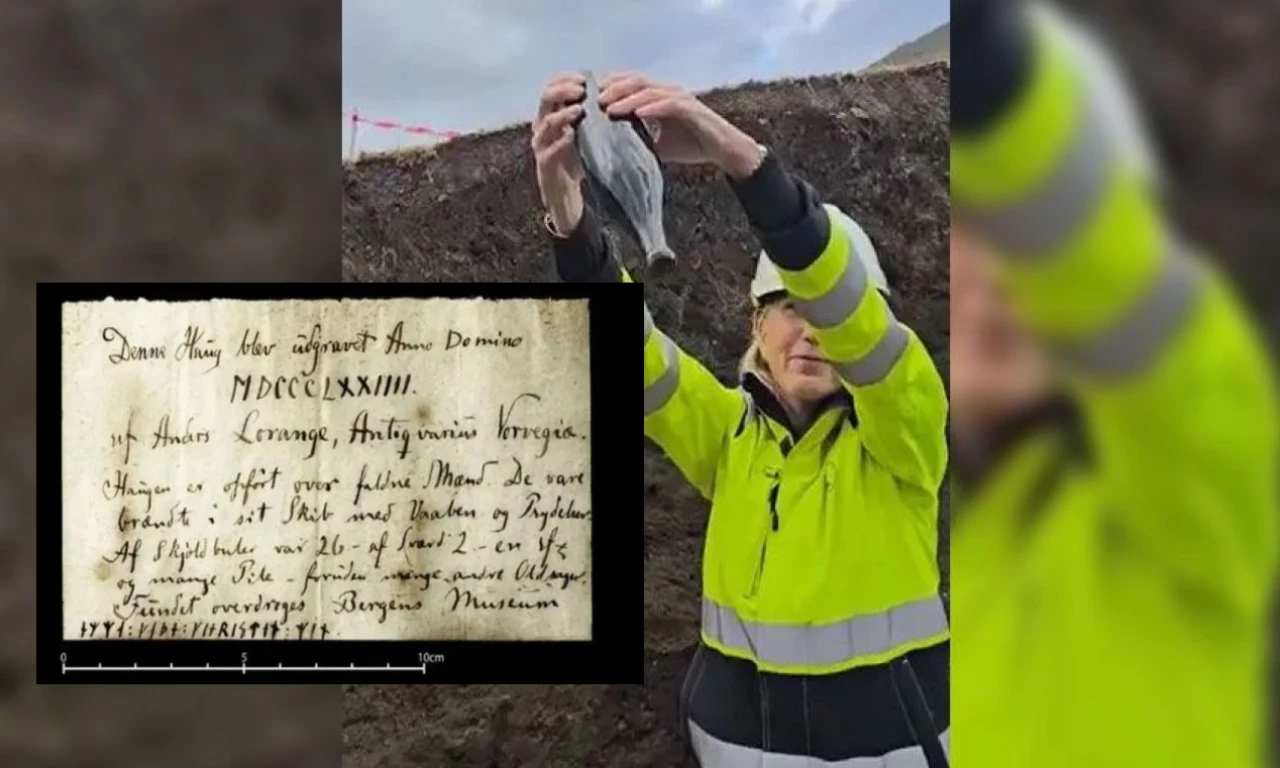 Denne Haug blev üdgravet Anno Domino
MDCCCLXXIIII.
af Anders Lorange, Antiqvariüs Norvegiæ.
Haugen er opført over faldne Mænd. De vare
brændte i sit Skib med Vaaben og Prydelser
Af Skjoldbuler var 26 - af Sværd 2 - en
og mange Pile - foruden mange andre Oldsager.
Fündet overdroges Bergens Museüm
0 5 10cm